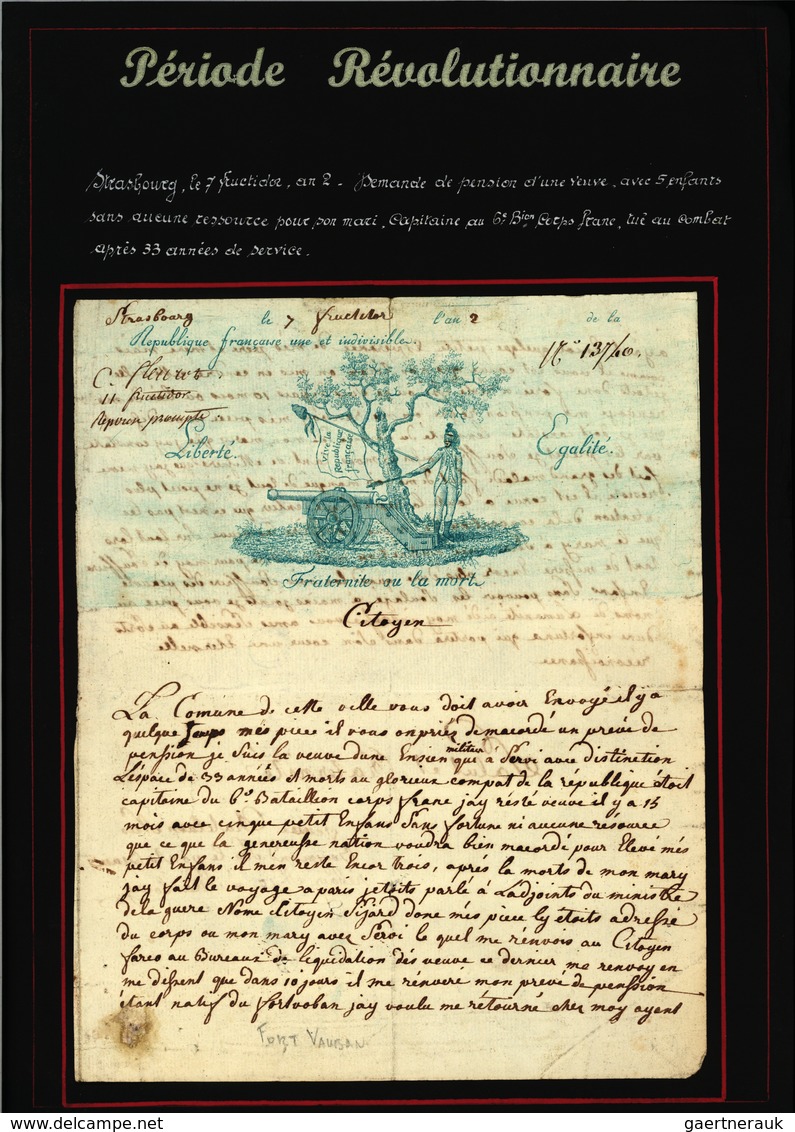 Période Révolutionnaire
Strasbourg, le 7 fructidor, an 2 - Demande de pension d'une veuve, avec 5 enfants
sans aucune ressource pour son mari, Capitaine au 6e Bion Corps franc, tué au combat
après 33 années de service.
Strasbourg le 7 fructidor l'an 2 de la
Republique française une et indivisible.
N.o 13740.
C.
11 fructidor
prompte
Liberté.
Egalité.
Vive la
Republique
française
Fraternite ou la mort.
Citoyen
La Comune de cette ville vous doit avoir Envoyé il y a
quelque temps més piece il vous on priés demacordé un prevé de
pension je suis la veuve dune Ensien militair qui à Servi avec distinction
L'espace de 33 années et morts au glorieux compat de la république étoit
capitaine du 6.e Bataillion corps franc jay résté veuve il y a 15
mois avec cinque petit Enfans Sans fortune ni aucune résource
que ce que la genereusse nation voudra bien macordé pour Elevé més
petit Enfans il m'en reste Encor trois, aprés la morts de mon mary
jay fait le voyage a paris jetoits parlé à L'adjoints du ministre
de la guere Nome Citoyen donc més piece ly étoits adressé
du corps ou mon mary avez Servi le quel me rénvois au Citoyen
fareo au Bureaux de liquidation dés veuve ce dernier ma renvoy en
me disent que dans 10 jours il me rénvere mon prevé de pension
étant natif du fortvoban jay voulu me rétourné cher moy ayent
FORT VAUBAN
gaertnerauk